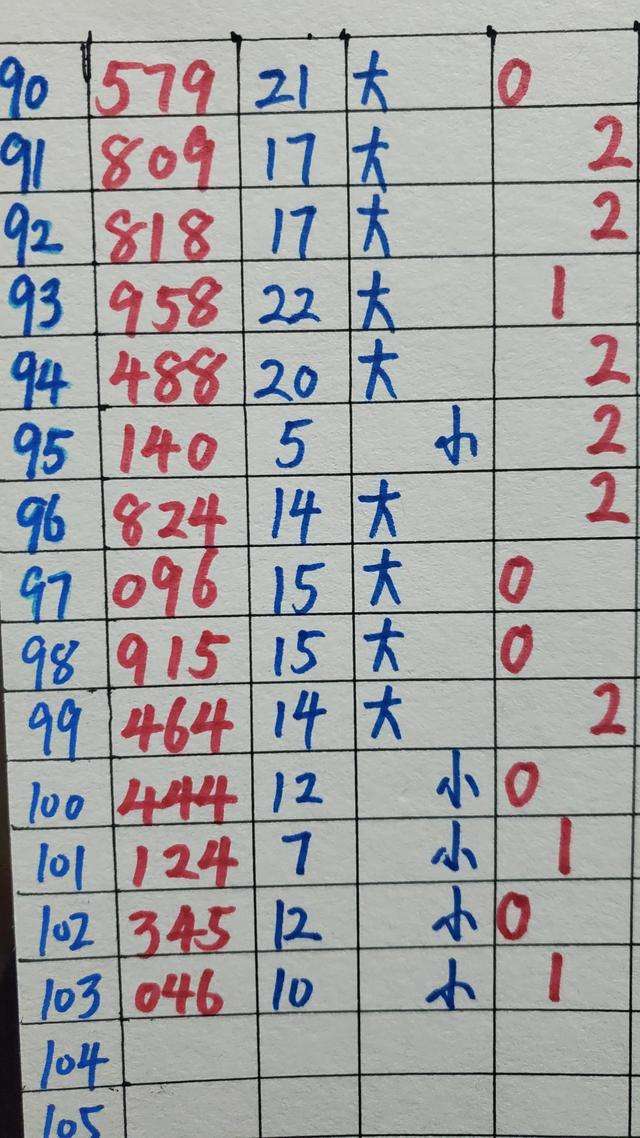 90 579 21 大 0
91 809 17 大 2
92 818 17 大 2
93 958 22 大 1
94 488 20 大 2
95 140 5 小 2
96 824 14 大 2
97 096 15 大 0
98 915 15 大 0
99 464 14 大 2
100 444 12 小 0
101 124 7 小 1
102 345 12 小 0
103 046 10 小 1
104
105